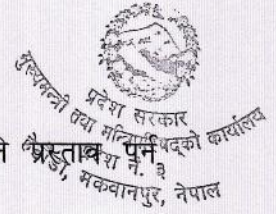 प्रदेश सरकार
मुख्यमन्त्री तथा मन्त्रिपरिषद्को कार्यालय
प्रदेश नं. ३
हेटौंडा, मकवानपुर, नेपाल
ने प्रस्ताव पुर्ने